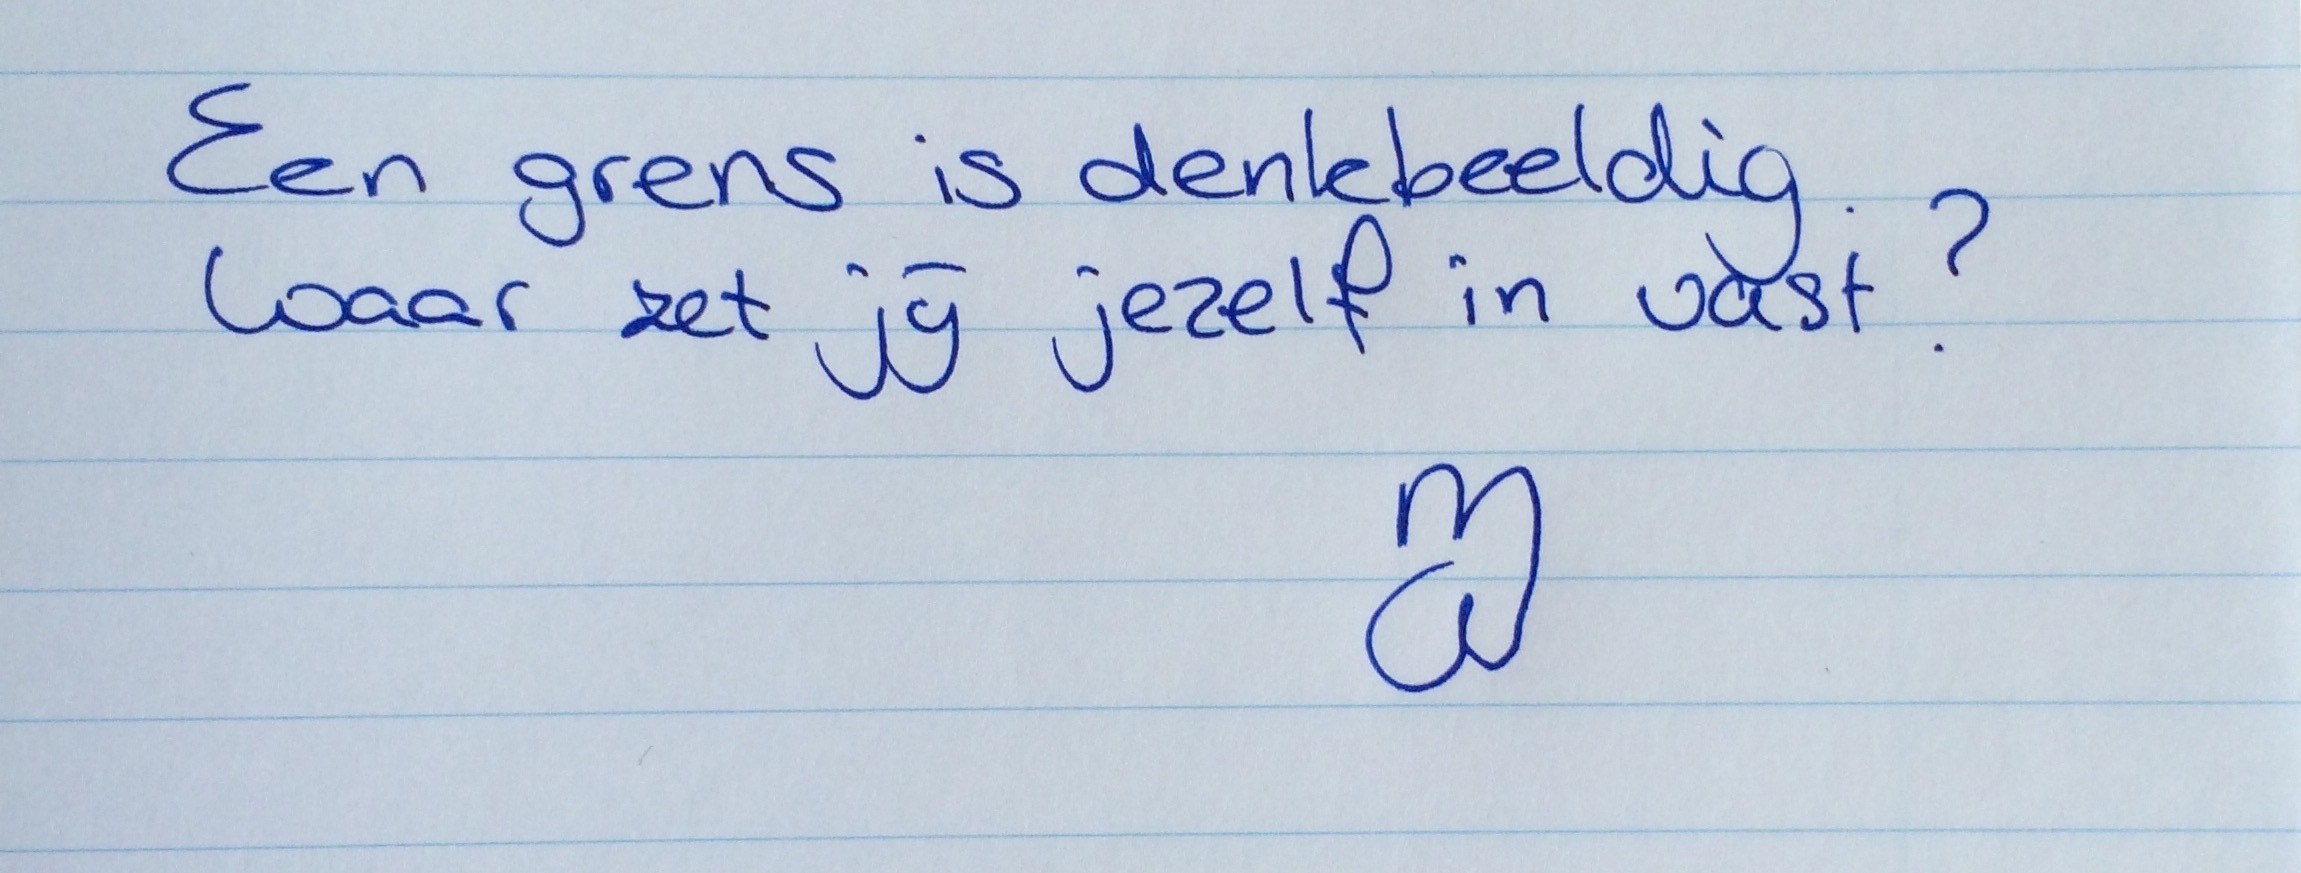 Een grens is denkbeeldig.
Waar zet jij jezelf in vast?